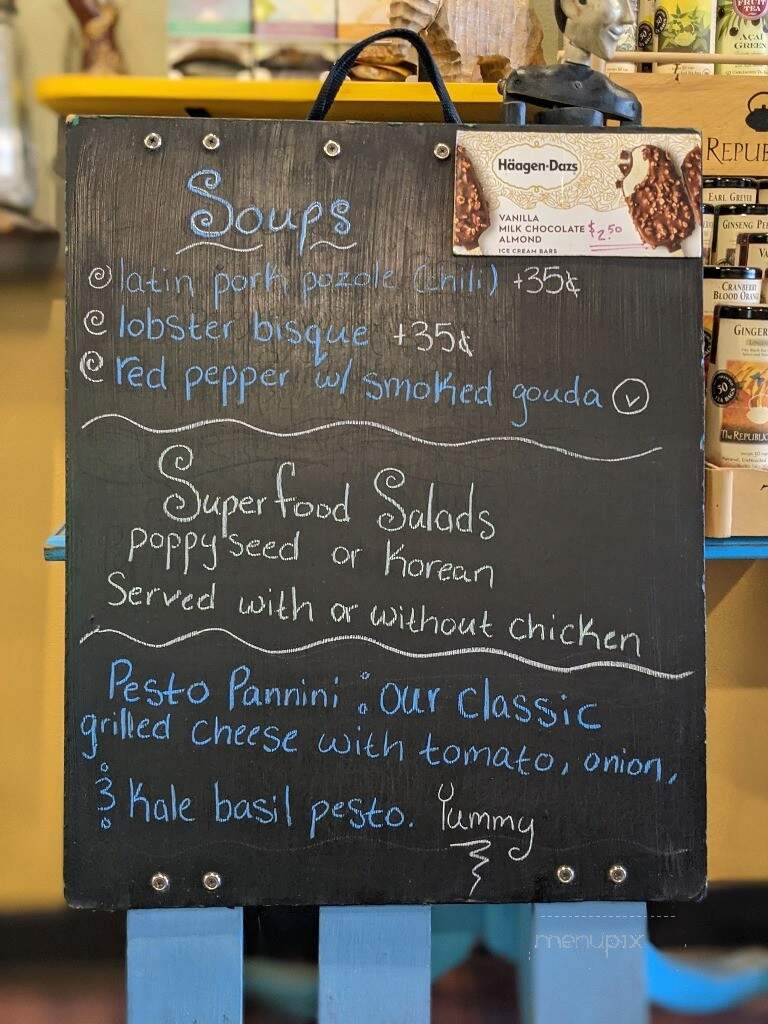 FRUIT TEA
AÇAÍ GREEN
REPUB
Häagen-Dazs
VANILLA
MILK CHOCOLATE $2.50
ALMOND
ICE CREAM BARS
Soups
latin pork pozole (chili) +35¢
lobster bisque +35¢
red pepper w/ smoked gouda v
Superfood Salads
poppyseed or Korean
Served with or without chicken
Pesto Pannini : our classic
grilled cheese with tomato, onion,
& Kale basil pesto. Yummy
EARL GREYER
GINSENG PE
VA
CRANBERRY
BLOOD ORANG
GINGER
50
THE REPUBLIC
menupix